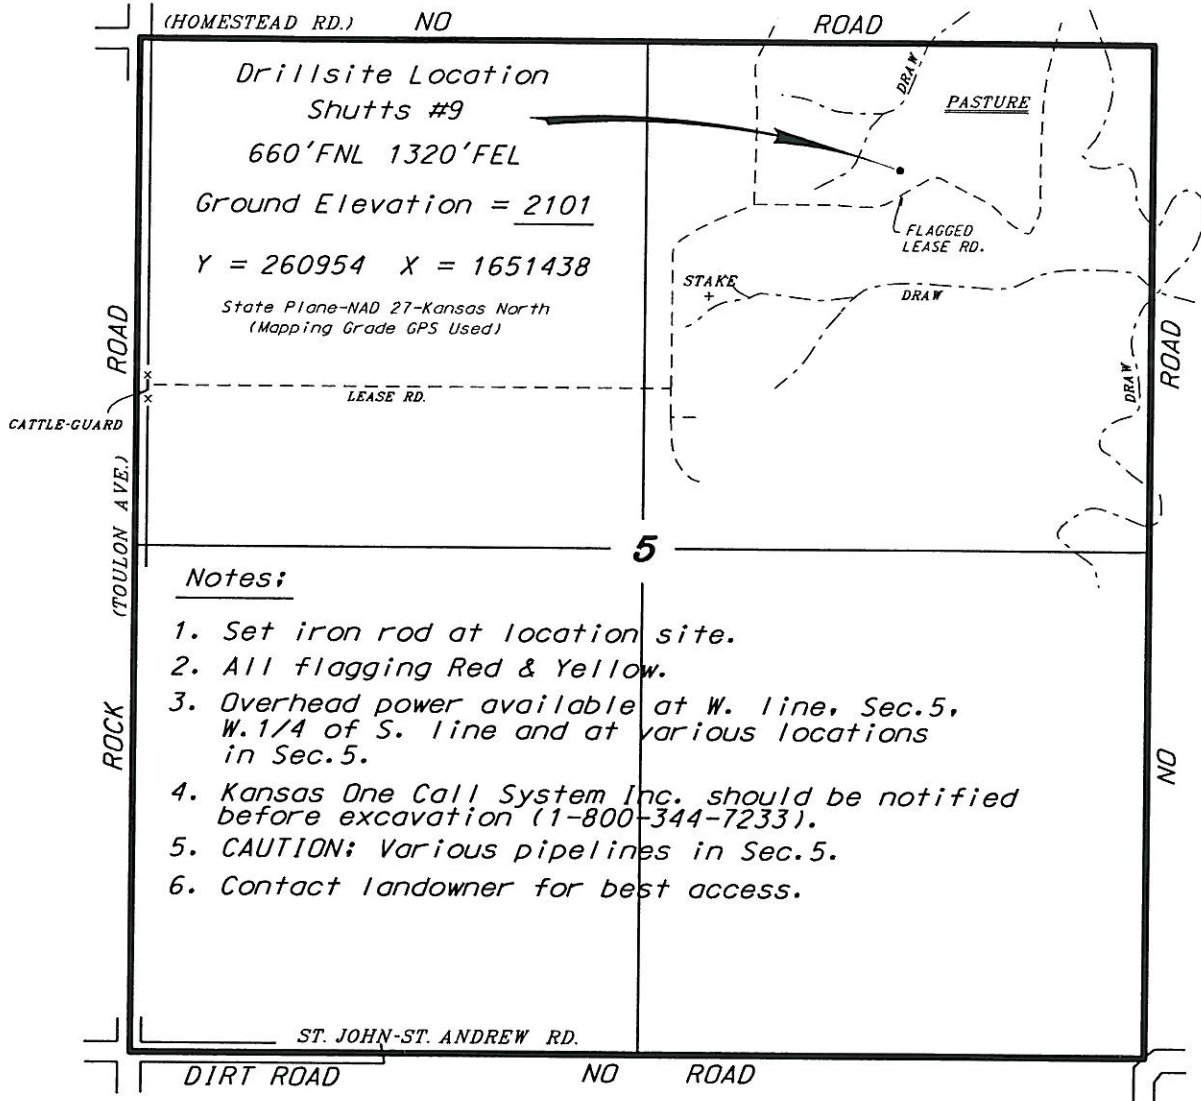 (HOMESTEAD RD.) NO ROAD
Drillsite Location
Shutts #9
660'FNL 1320'FEL
Ground Elevation = 2101
Y = 260954 X = 1651438
State Plane-NAD 27-Kansas North
(Mapping Grade GPS Used)
DRAW
PASTURE
FLAGGED
LEASE RD.
STAKE
DRAW
DRAW
LEASE RD.
CATTLE-GUARD
ROAD
(TOULON AVE.)
ROCK
ROAD
NO
5
Notes:
1. Set iron rod at location site.
2. All flagging Red & Yellow.
3. Overhead power available at W. line, Sec.5,
W.1/4 of S. line and at various locations
in Sec.5.
4. Kansas One Call System Inc. should be notified
before excavation (1-800-344-7233).
5. CAUTION: Various pipelines in Sec.5.
6. Contact landowner for best access.
ST. JOHN-ST. ANDREW RD.
DIRT ROAD NO ROAD